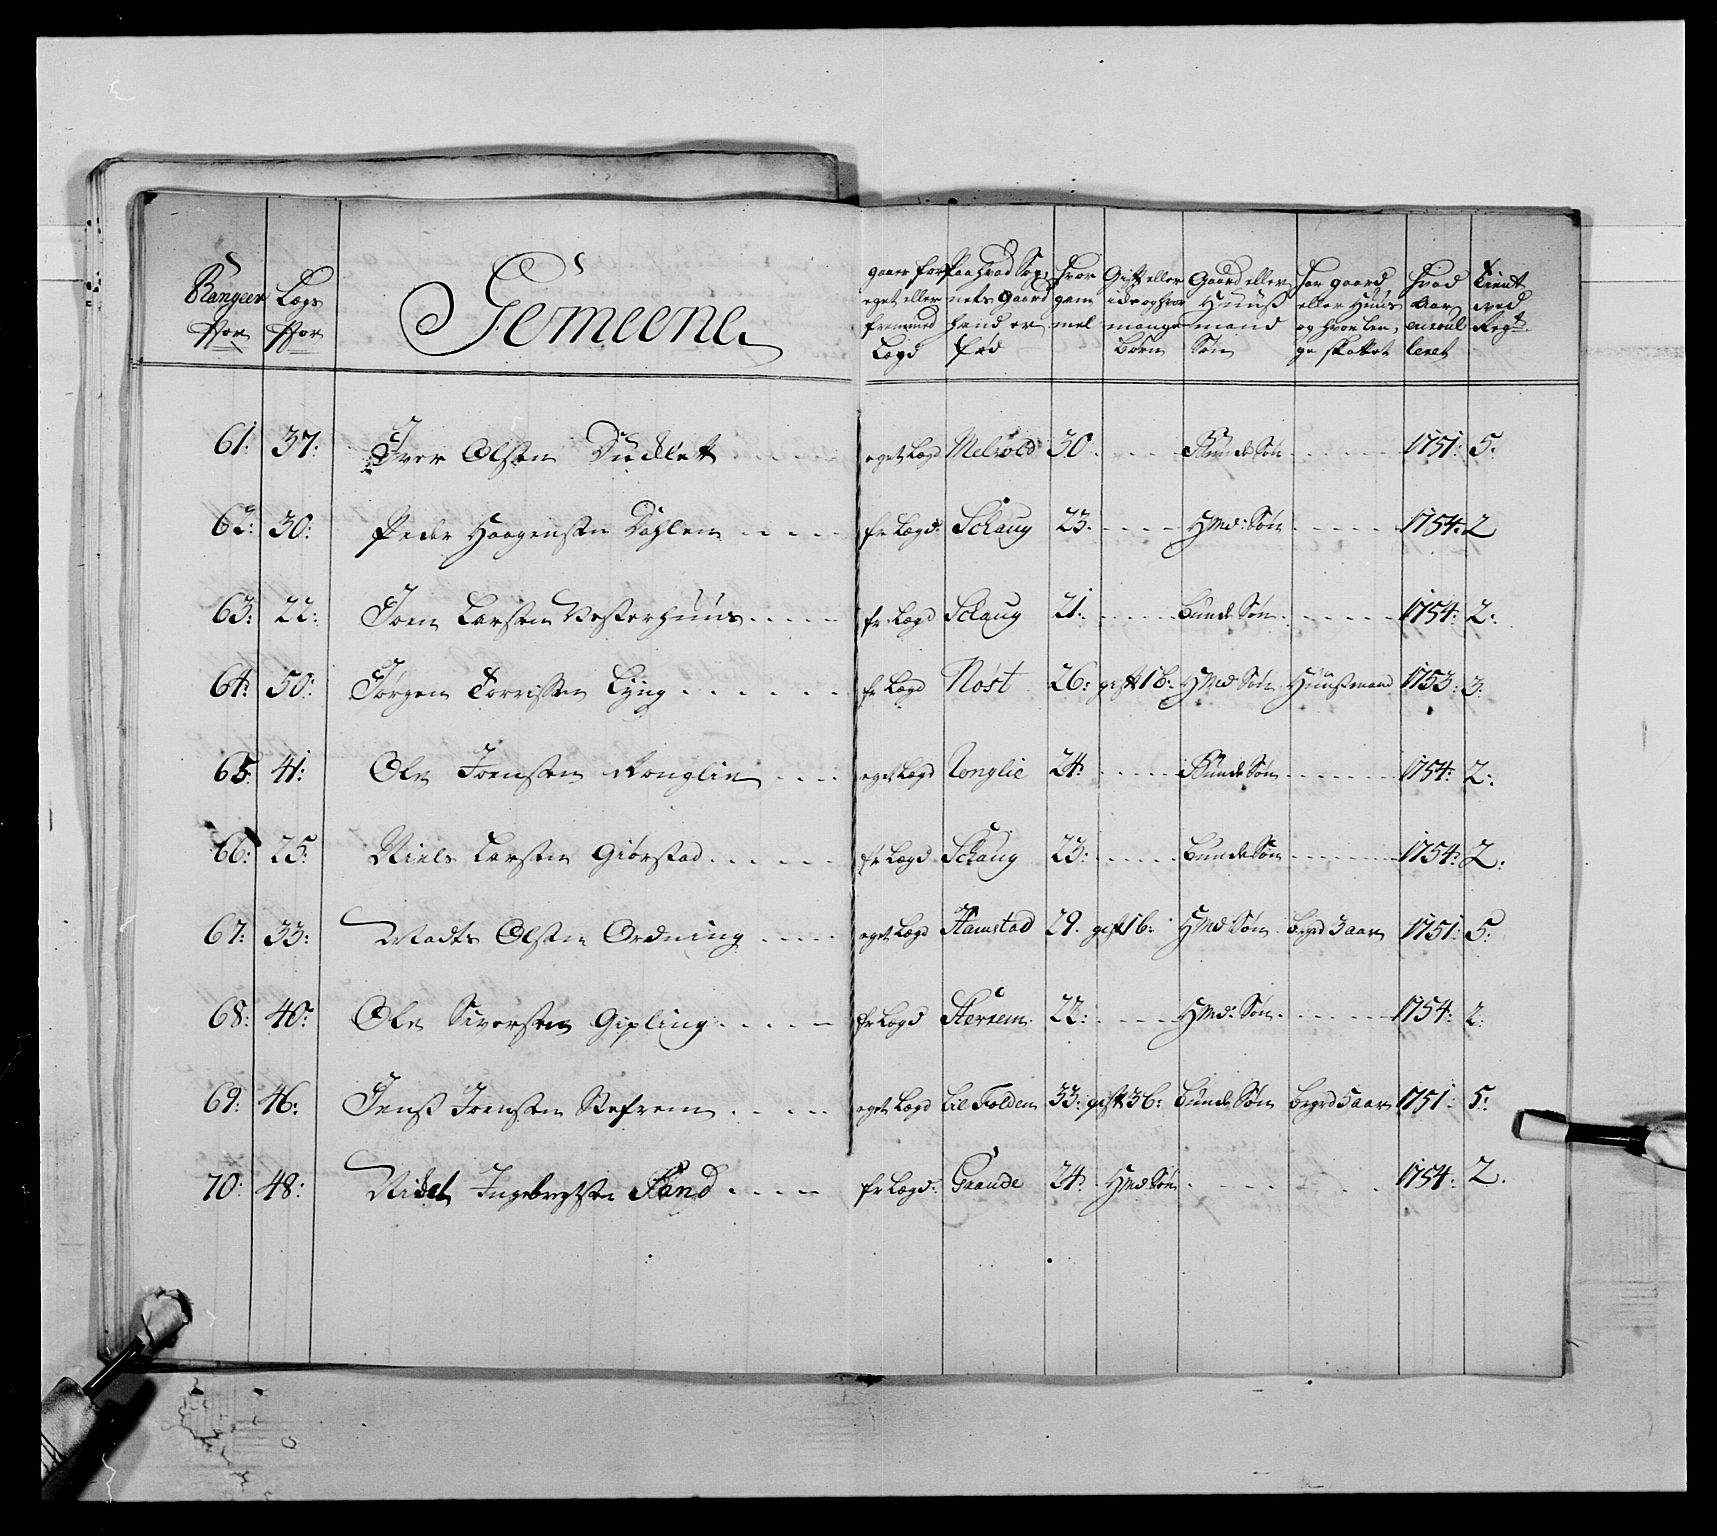 Rangeer Nor
Lægs Nor
Gemeene
gaaer for eget eller fremmed Lægd
Paa hvad Sog: nets Gaard hand er fød
Hvor gam mel
Gift eller ide og hvor mange Børn
Gaard eller Huuß mand Søn
Har gaard eller Huus og hvor len, ge skattet
Hvad Aar enroul leret
Tient ved Regt.
61: 37: Iver Olsen eget Lægd Melvold 30. Bunde Søn 1751: 5:
62: 30: Peder Haagensen Dahlen fr Lægd: Schaug 23. Hmd: Søn 1754: 2
63: 22: Joen Larsen Vesterhuus fr. Lægd Schaug 21. Bunde Søn 1754: 2:
64: 50: Jørgen Torrissen Lyng fr Lægd Nøst 26: gift 1 B: Hmd Søn Huusmand 1753: 3:
65: 41: Ole Joensen Ronglie eget Lægd Ronglie 24: Bunde Søn 1754: 2:
66: 25: Niels Larsen Giørstad fr Lægd Schaug 23: Bunde Søn 1754: 2:
67: 33: Madts Olsen Ordning eget Lægd Hamstad 29. gift 1 b: Hmd Søn bøgd 3 aar 1751: 5:
68: 40: Ole Siversen Gipling fr Lægd Hersem 22: Hmd: Søn 1754: 2:
69: 46: Jenß Joensen eget Lægd Lil Folden 33: gift 3 b: Bunde Søn bøgd 5 aar 1751: 5:
70: 48: Ingebregtsen Sand fr Lægd: Grande 24: Hmd Søn 1754: 2.